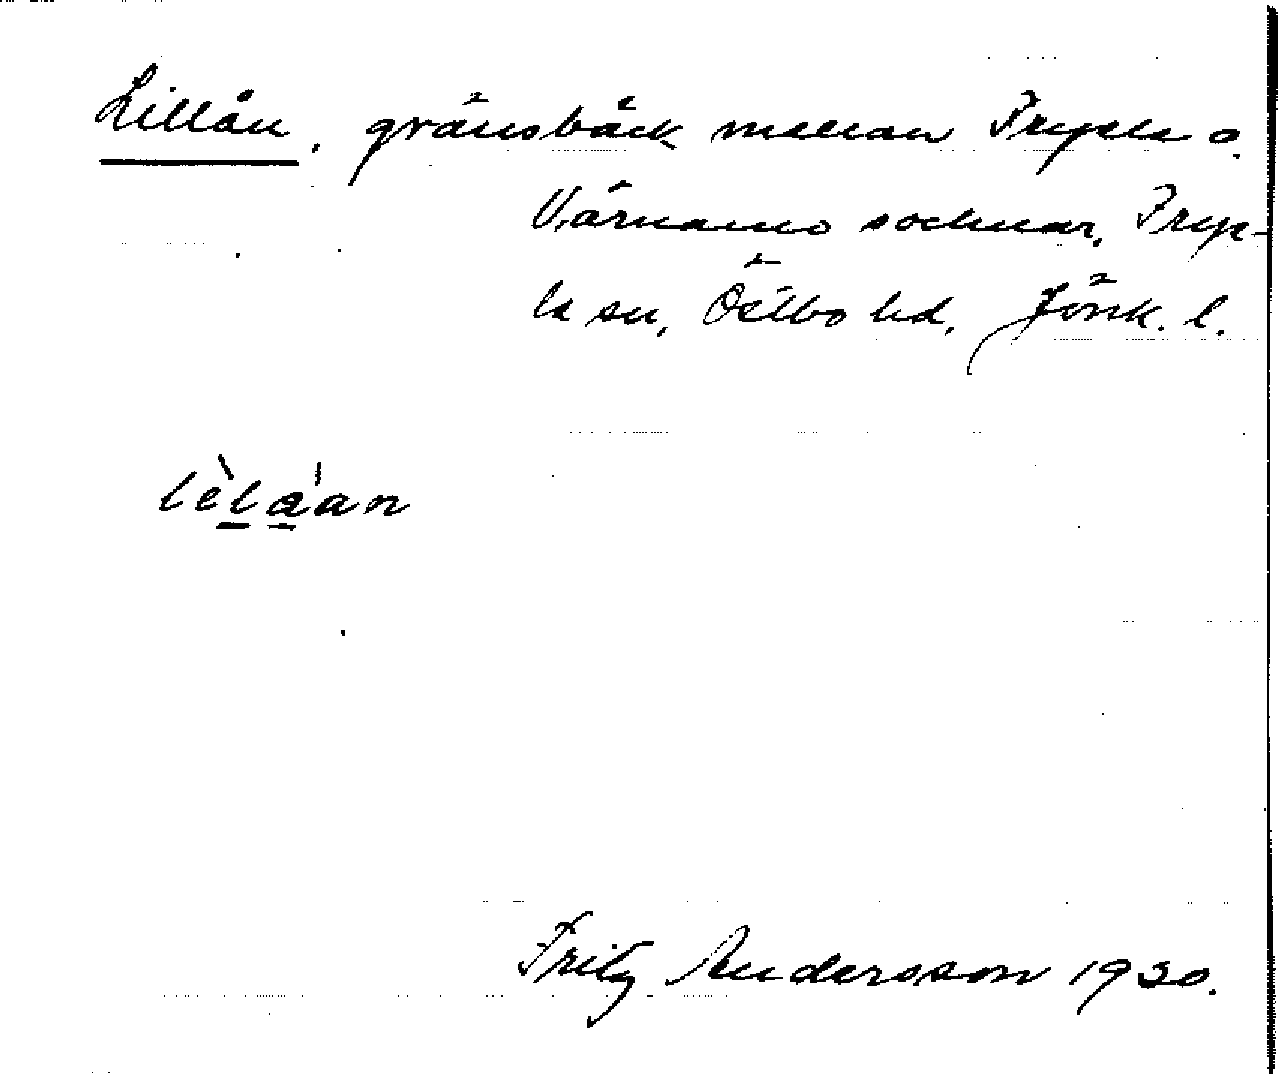 Lillån, gränsbäck mellan Fryele o.
Värnamo socknar, Frye-
le sn, Östbo hd, Jönk. l.
lèlạ̀an
Fritz Andersson 1930.